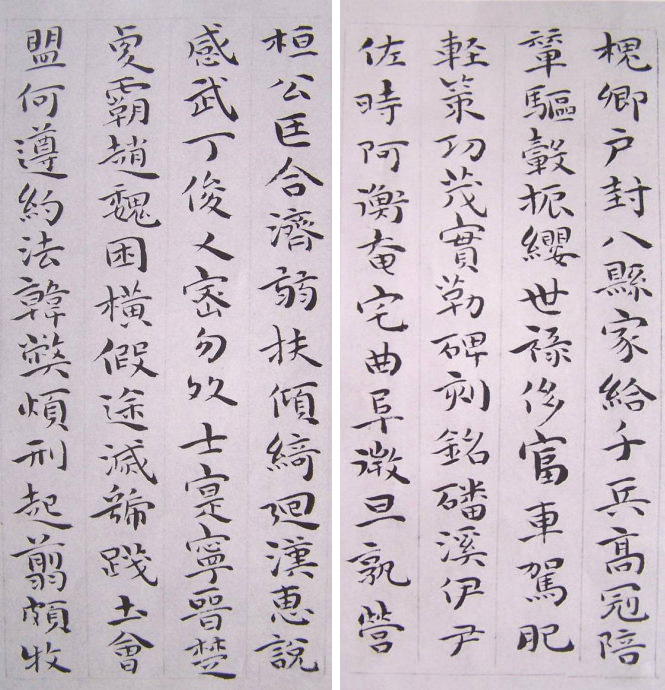 槐卿户封八縣家給千兵高冠陪
輦驅轂振纓世祿侈富車駕肥
軽策功茂實勒碑刻銘磻溪伊尹
佐時阿衡奄宅曲阜微旦孰營
桓公匡合濟弱扶傾綺迴漢惠說
感武丁俊乂密勿多士寔寧晉楚
更霸趙魏困橫假途滅虢踐土會
盟何遵約法韓弊煩刑起翦頗牧